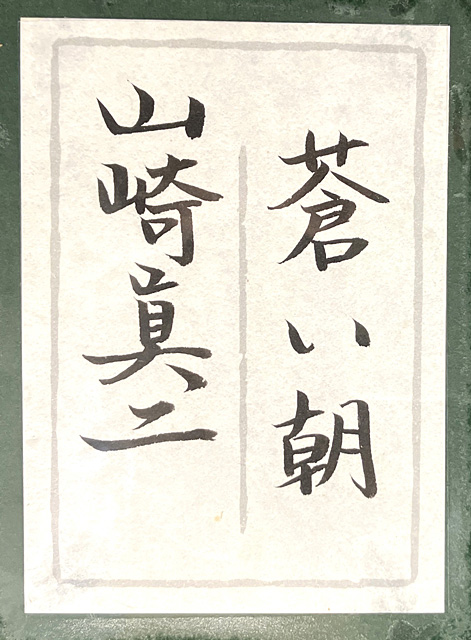 蒼い朝
山崎眞二